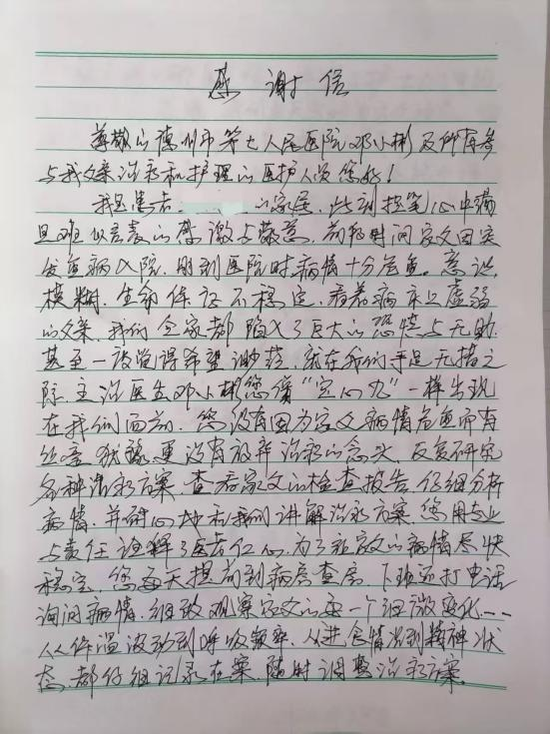 感谢信
尊敬的德州市第七人民医院邓小彬及所有参
与我父亲治疗和护理的医护人员您好!
我是患者 的家属,此刻提笔心中满
是难以言表的感激与敬意,前段时间家父因突
发急病入院,刚到医院时,病情十分危重。意识
模糊,生命体征不稳定,看着病床上虚弱
的父亲,我们全家都陷入了巨大的恐慌与无助
甚至一度觉得希望渺茫,就在我们手足无措之
际,主治医生邓小彬您像“定心丸”一样出现
在我们面前,您没有因为家父病情危重而有
丝毫犹豫,更没有放弃治疗的念头,反复研究
各种治疗方案,查看家父的检查报告,仔细分析
病情,并耐心地和我们讲解治疗方案,您用专业
与责任诠释了医者仁心,为了让家父的病情尽快
稳定,您每天提前到病房查房,下班还打电话
询问病情,细致观察家父的每一个细微变化……
从体温波动到呼吸频率,从进食情况到精神状
态,都仔细记录在案,随时调整治疗方案,